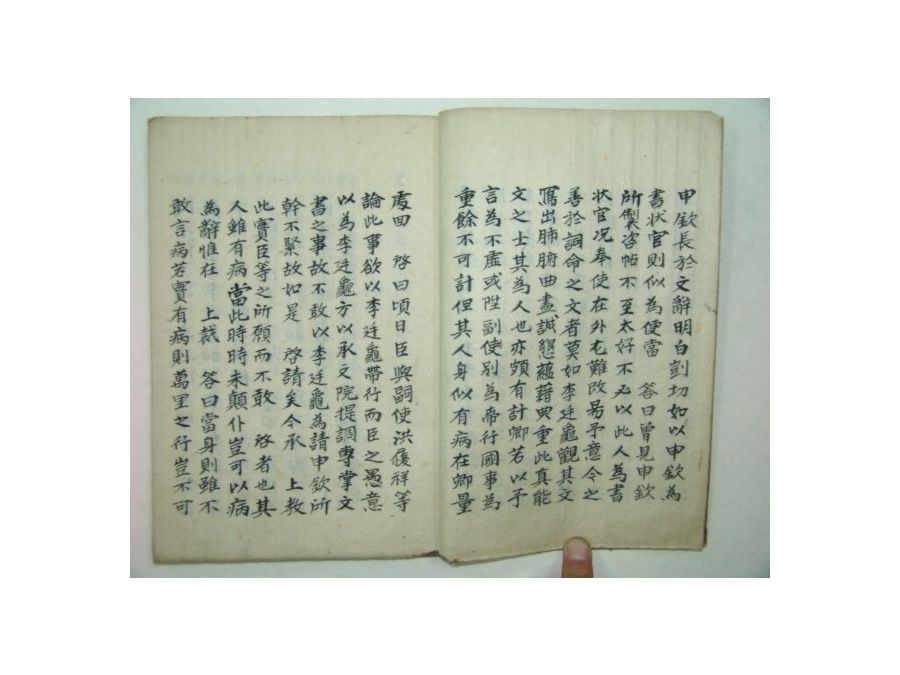 申欽長於文辭明白剴切如以申欽為
書狀官則似為便當 答曰曾見申欽
所製咨帖不至太好不必以此人為書
狀官况奉使在外尤難改易予意今之
善於詞命之文者莫如李廷龜觀其文
寫出肺腑曲盡誠懇蘊藉典重此真能
文之士其為人也亦頗有計卿若以予
言為不虛或陞副使別為帶行國事為
重餘不可計但其人身似有病在卿量
處回 啓曰頃日臣與嗣使洪履祥等
論此事欲以李廷龜帶行而臣之愚意
以為李廷龜方以承文院提調專掌文
書之事故不敢以李廷龜為請申欽所
幹不緊故如是 啓請矣今承 上教
此實臣等之所願而不敢 啓者也其
人雖有病當此時時未顛仆豈可以病
為辭惟在 上裁 答曰當身則雖不
敢言病若實有病則萬里之行豈不可